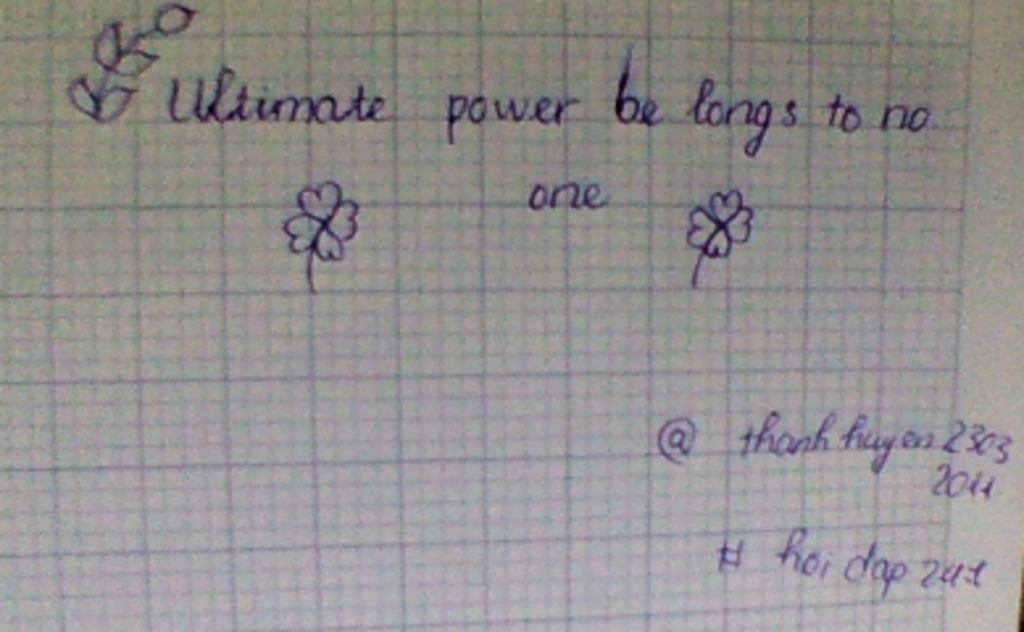 Ultimate power be longs to no
one
@ thanhhuyen2303
2011
# hoi dap 247